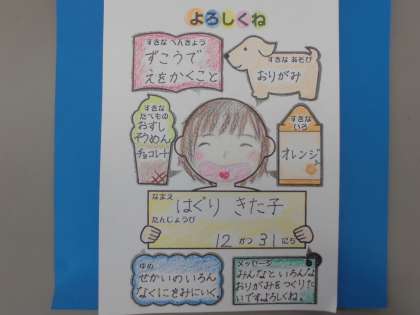 よろしくね
すきな べんきょう
ずこうで
えをかくこと
すきな あそび
おりがみ
すきな
たべもの
おすし
そうめん
チョコレート
すきな
いろ
オレンジ
なまえ
はぐり きた子
たんじょうび
12 がつ 31 にち
ゆめ
せかいのいろん
なくにをみにいく。
メッセージ
みんなといろんな
おりがみをつくりた
いですよろしくね。